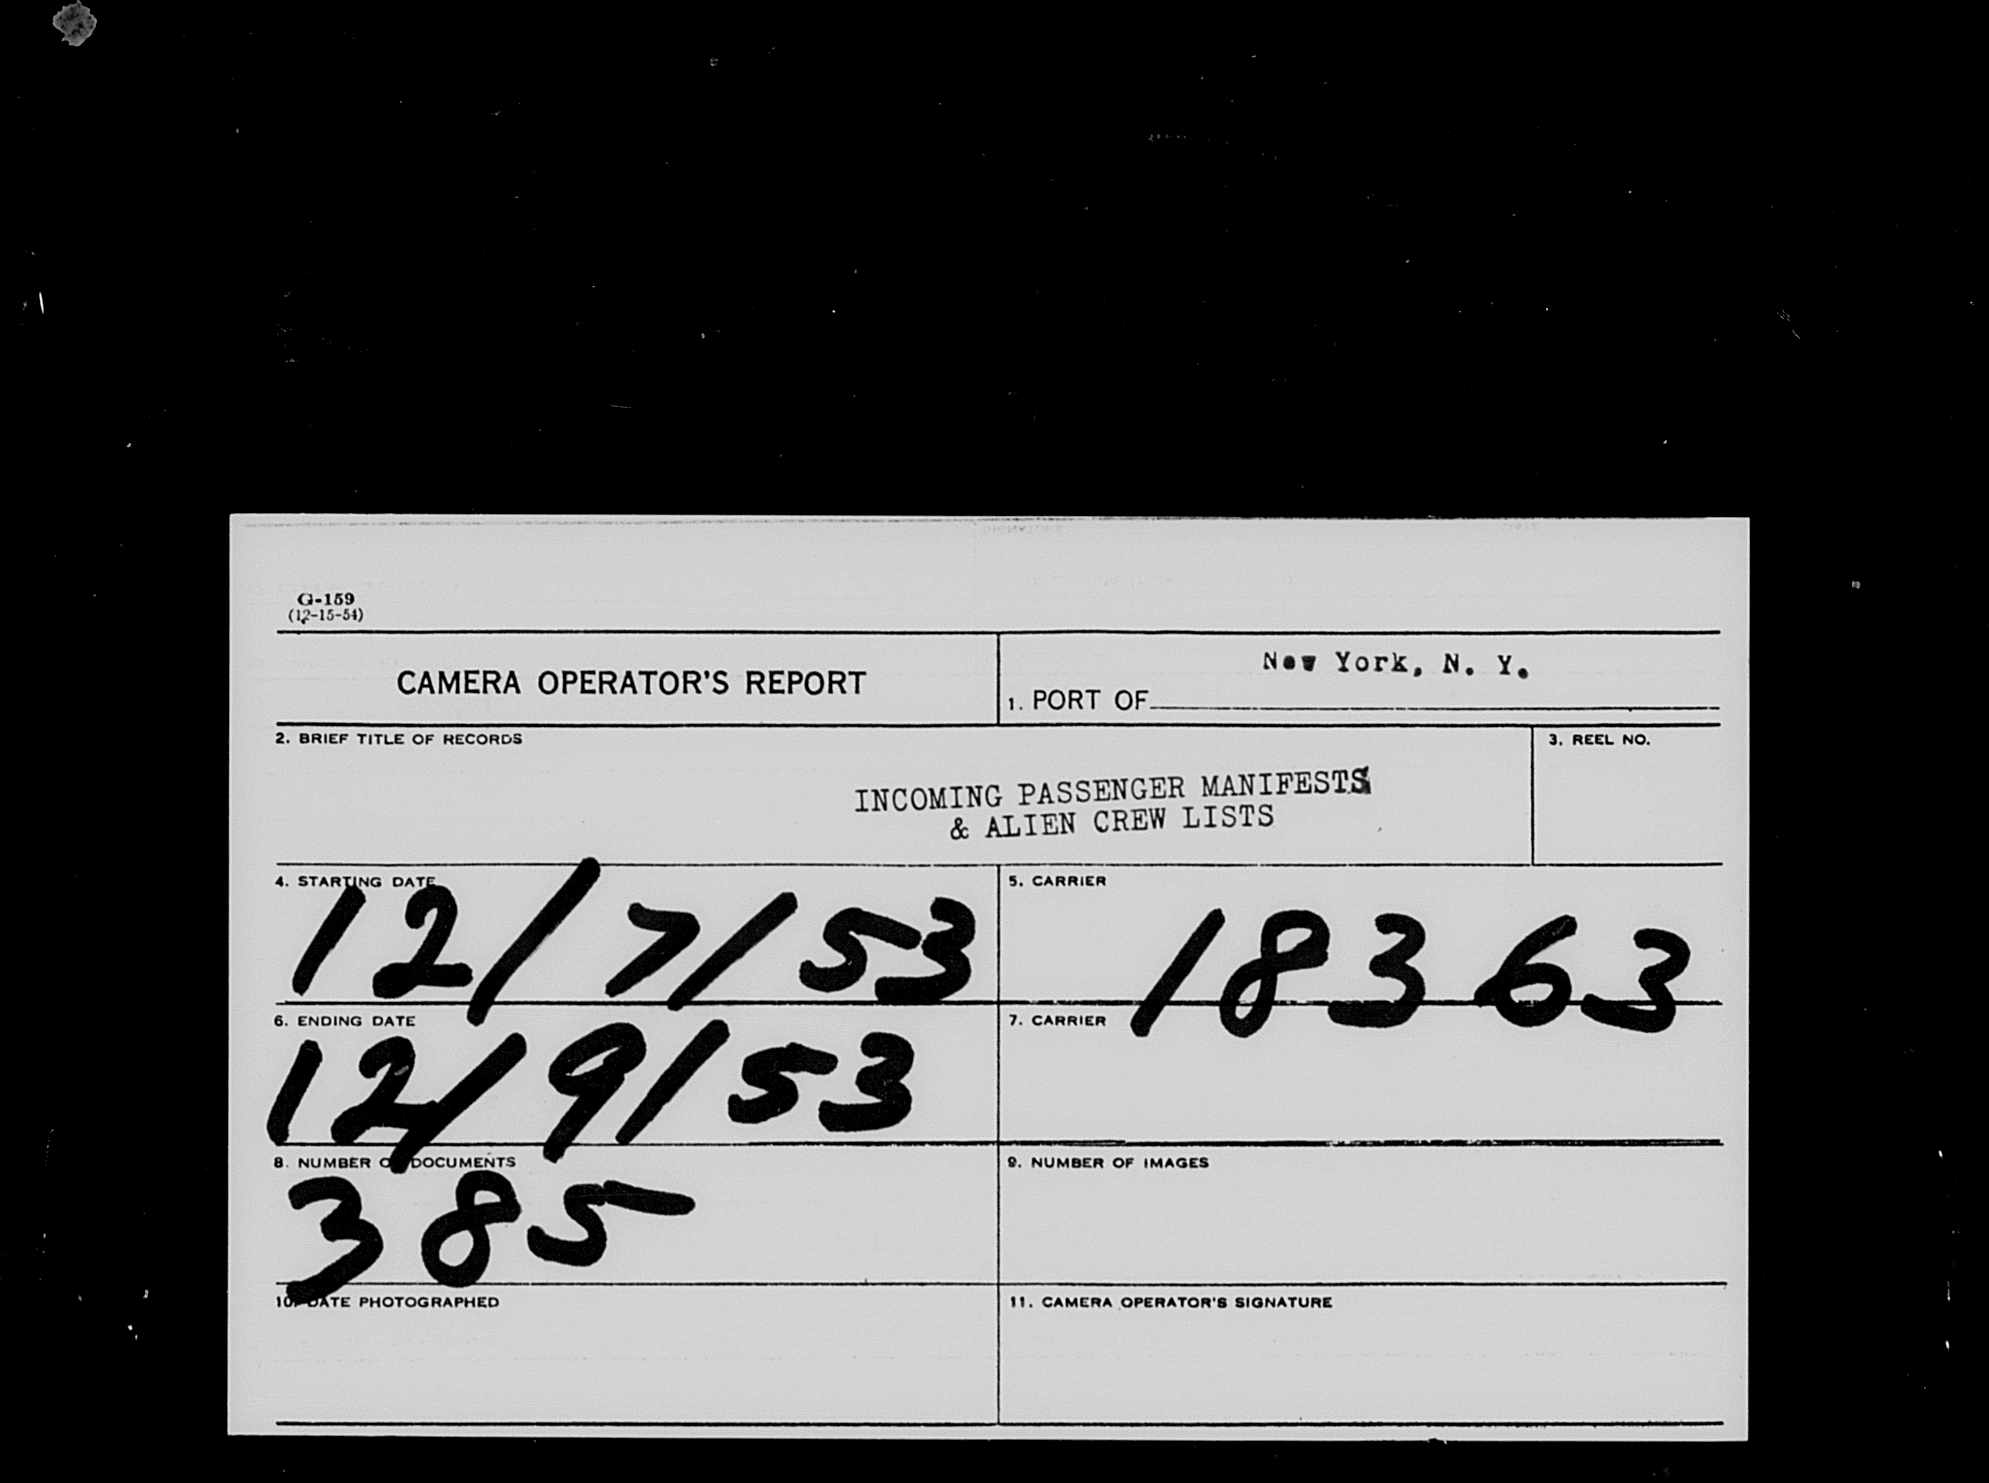 G-159
(12-15-54)
CAMERA OPERATOR'S REPORT
New York, N. Y.
1. PORT OF
2. BRIEF TITLE OF RECORDS
3. REEL NO.
INCOMING PASSENGER MANIFESTS
& ALIEN CREW LISTS
4. STARTING DATE
12/7/53
5. CARRIER
18363
6. ENDING DATE
12/9/53
7. CARRIER
8. NUMBER OF DOCUMENTS
385
9. NUMBER OF IMAGES
10. DATE PHOTOGRAPHED
11. CAMERA OPERATOR'S SIGNATURE